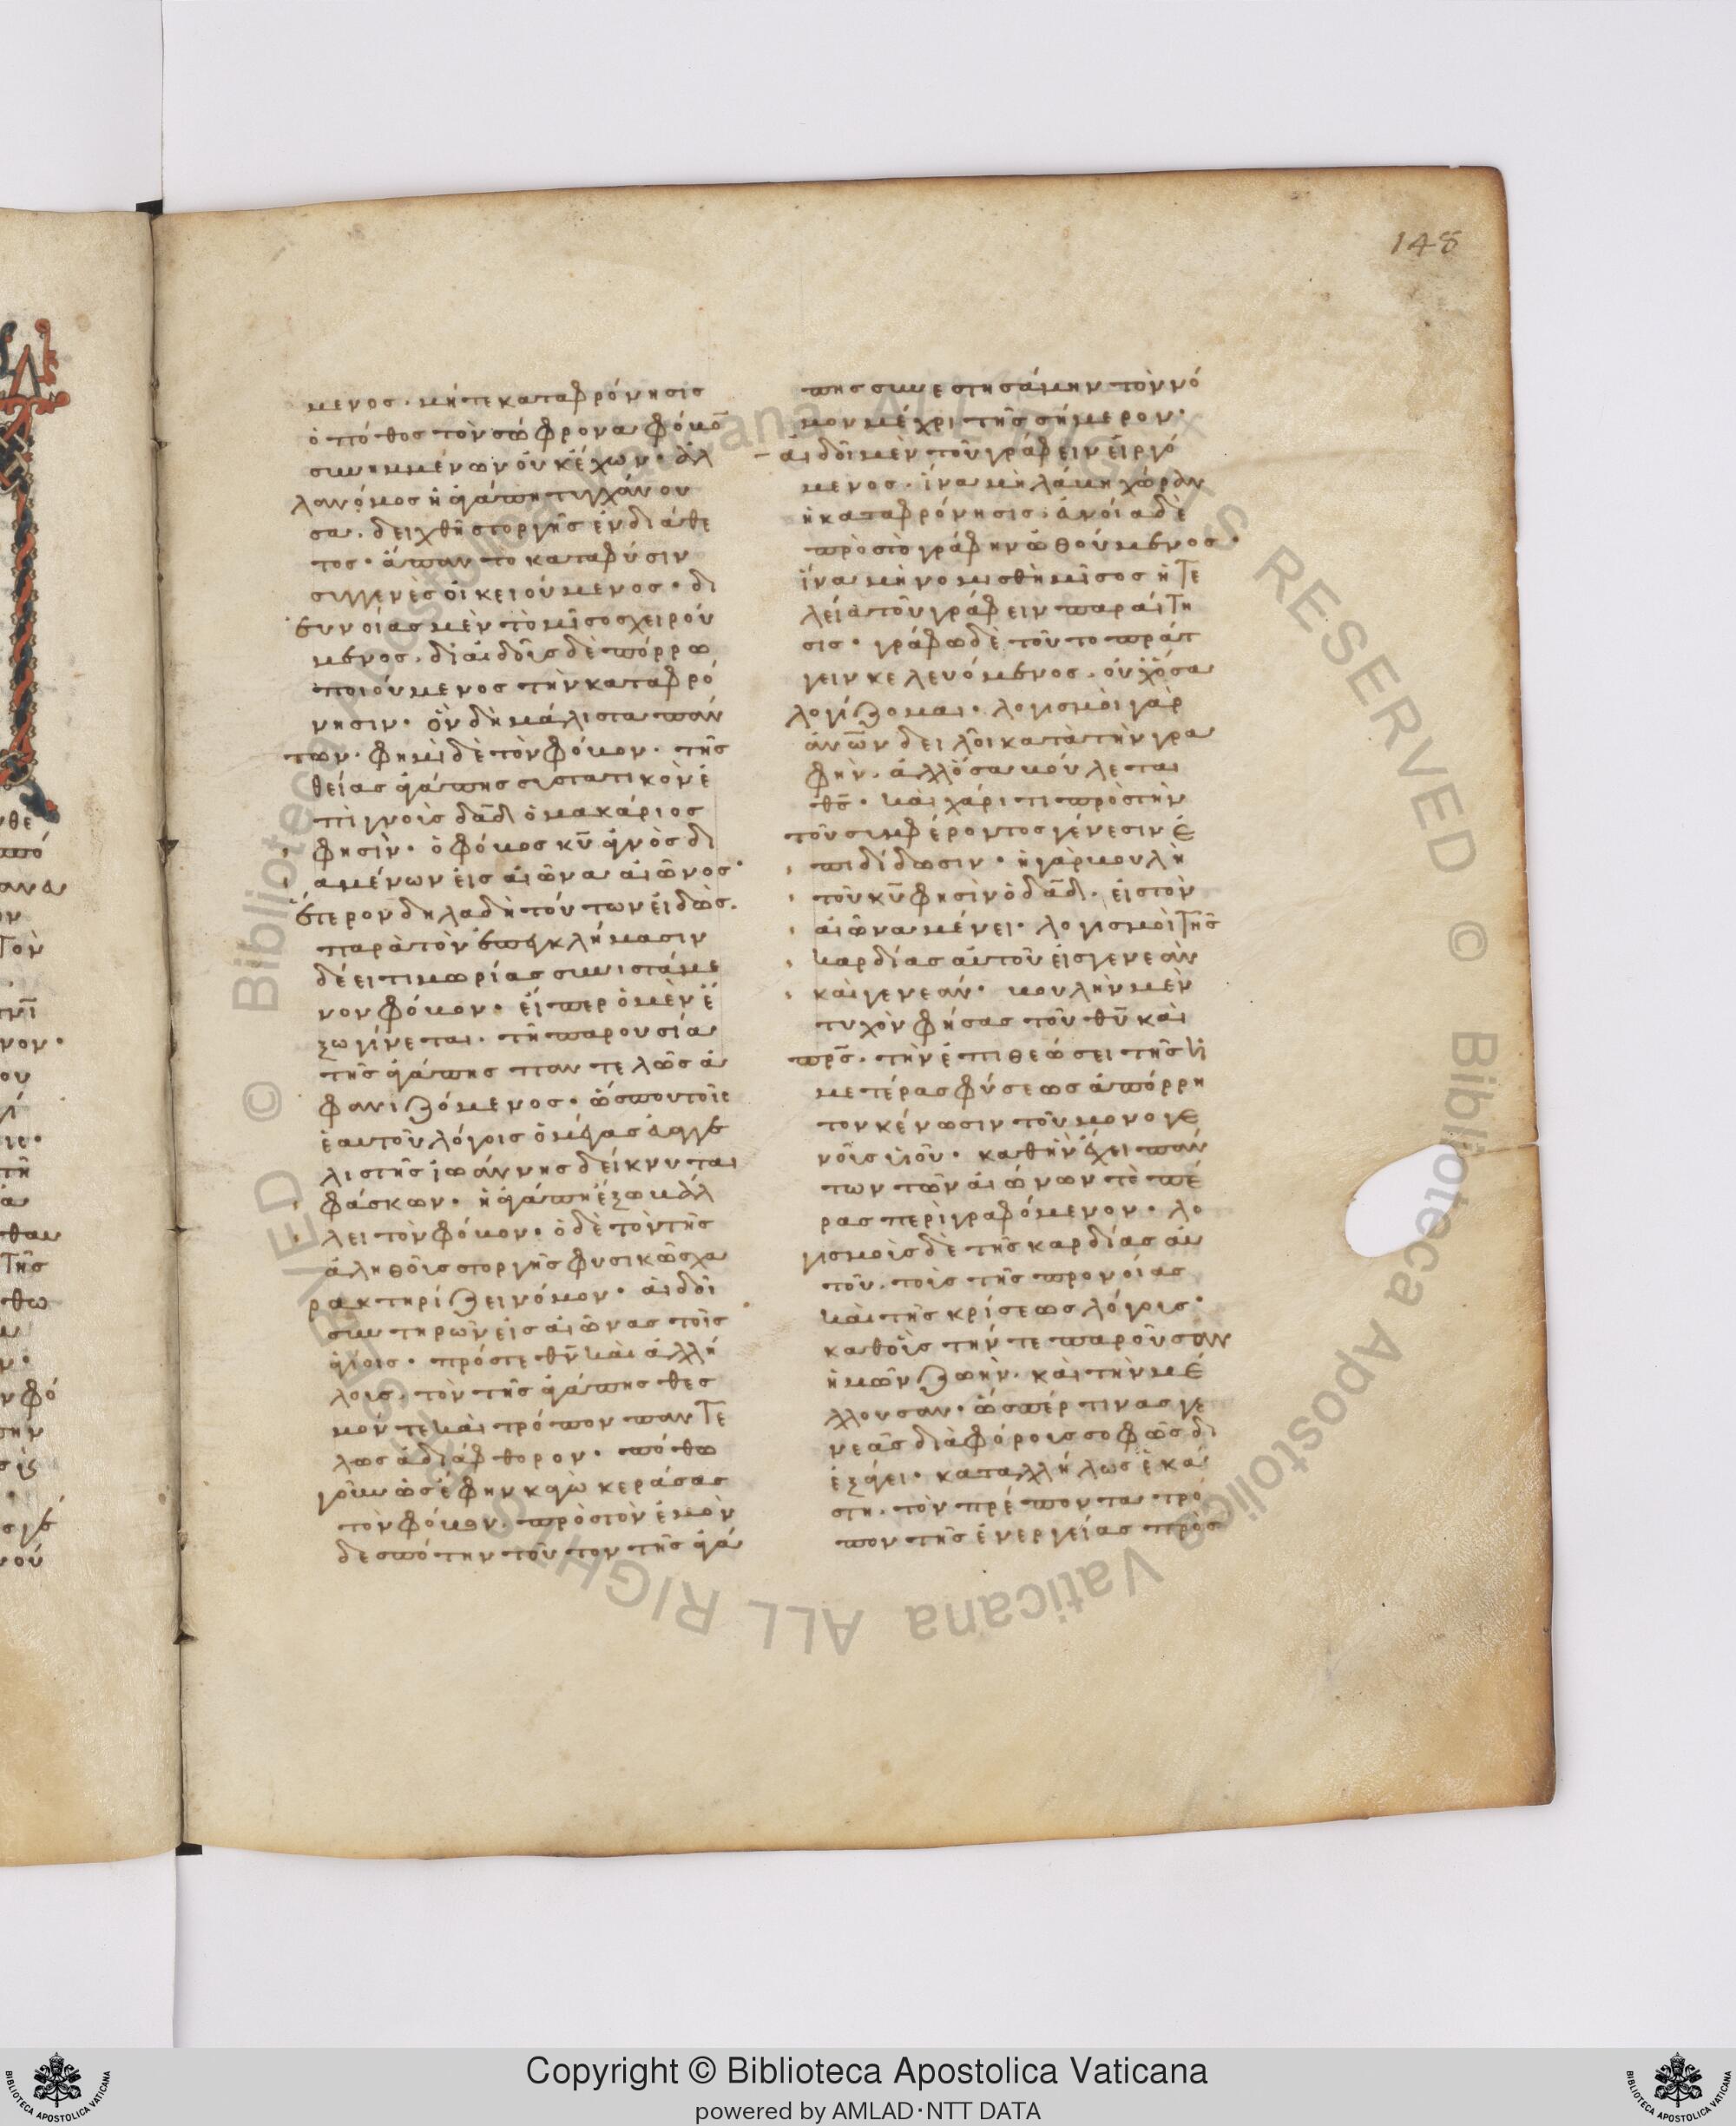 148
μενος· μήτε καταφρόνησις
ὁ πόθος τὸν σώφρονα φόβο̅
συνημμένον οὐκ ἔχων· ἀλ
λα νόμος ἡ ἀγάπη τυγχάνου
σα, δειχθῇ στοργῆς ἐνδιάθε
τος· ἅπαν το κατα φύσιν
συγγενὲς οἰκειούμενος· δι
εὐνοίας μὲν τὸ μῖσος χειρού
μενος, δι αἰδοῦς δὲ πόρρω
ποιούμενος τὴν καταφρό
νησιν· ὃν δὴ μάλιστα πάν
των· φημὶ δὲ τὸν φόβον· τῆς
θείας ἀγάπης συστατικὸν ἐ
πιγνοὺς δα̅δ ὁ μακάριος
φησὶν· ὁ φόβος κυ̅ ἁγνὸς δι
αμένων εἰς αἰῶνα αἰῶνος·
ἕτερον δηλαδὴ τούτων εἰδὼς.
παρὰ τὸν ἐπ εγκλήμασιν
δέει τιμωρίας συνιστάμε
νον φόβον· εἴπερ ὁ μὲν ἔ
ξω γίνεται, τῆ παρουσία
της ἀγάπης παντελῶς ἀ
φανιζόμενος· ὥς που τοῖς
ἑαυτοῦ λόγοις ὁ μέγας εὐαγγε
λιστὴς ἰωάννης δείκνυται
φάσκων· ἡ ἀγάπη ἔξω βάλ
λει τὸν φόβον· ὁ δὲ τὸν τῆς
ἀληθοῦς στοργῆς φυσικῶς χα
ρακτηρίζει νόμον· αἰδοῖ
συντηρῶν εἰς αἰῶνας τοῖς
ἁγίοις· πρός τε θν̅ καὶ ἀλλή
λους, τὸν τῆς ἀγάπης θεσ
μόν τε καὶ τρόπον παντε
λως ἀδιάφθορον· πόθω
γοῦν ὡς ἔφην καγὼ κεράσας
τὸν φόβον, πρὸς τὸν ἐμὸν
δεσπότην τοῦτον τῆς ἀγά
πης συνεστησάμην τὸν νό
μον μέχρι τῆς σήμερον·
αἰδοῖ μὲν τοῦ γράφειν εἰργό
μενος, ἵνα μὴ λάβη χώραν
ἡ καταφρόνησις· εὐνοία δὲ
πρὸς τὸ γράφην ὠθούμενος·
ἵνα μὴ νομισθῆ μῖσος ἡ τε
λεία τοῦ γράφειν παραίτη
σις· γράφω δὲ τοῦτο πράτ
τειν κελευόμενος, οὐχ ὅσα
λογίζομαι· λογισμοὶ γὰρ
ἀνω̅ν δειλοὶ κατὰ τὴν γρα
φὴν, ἀλλ ὅσα βούλεται
θς̅· καὶ χάριτι πρὸς τὴν
τοῦ συμφέροντος γένεσιν ἐ
πιδίδωσιν· ἡ γὰρ βουλὴ
τοῦ κυ̅ φησὶν ὁ δα̅δ· εἰς τὸν
αἰῶνα μένει· λογισμοὶ τῆς
καρδίας αὐτοῦ εἰς γενεὰν
καὶ γενεάν· βουλὴν μὲν
τυχὸν φήσας τοῦ θυ̅ καὶ
πρς̅, τὴν ἐπι θεώσει τῆς ἡ
μετέρας φύσεως ἀπόρρη
τον κένωσιν τοῦ μονογε
νοῦς υἱοῦ· καθ ἣν ἔχει πάν
των τῶν αἰώνων τὸ πέ
ρας περιγραφόμενον· λο
γισμοὺς δὲ τῆς καρδίας αὐ
τοῦ, τοὺς τῆς προνοίας
καὶ τῆς κρίσεως λόγους·
καθ οὓς τήν τε παροῦσαν
ἡμῶν ζωὴν, καὶ τὴν μέ
λλουσαν· ὥσπέρ τινας γε
νεὰς διαφόρους σοφῶς δι
εξάγει· καταλλήλως ἑκά
στη, τὸν πρέποντα τρό
πον τῆς ἐνεργείας πρὸσ
Copyright © Biblioteca Apostolica Vaticana
powered by AMLAD·NTT DATA